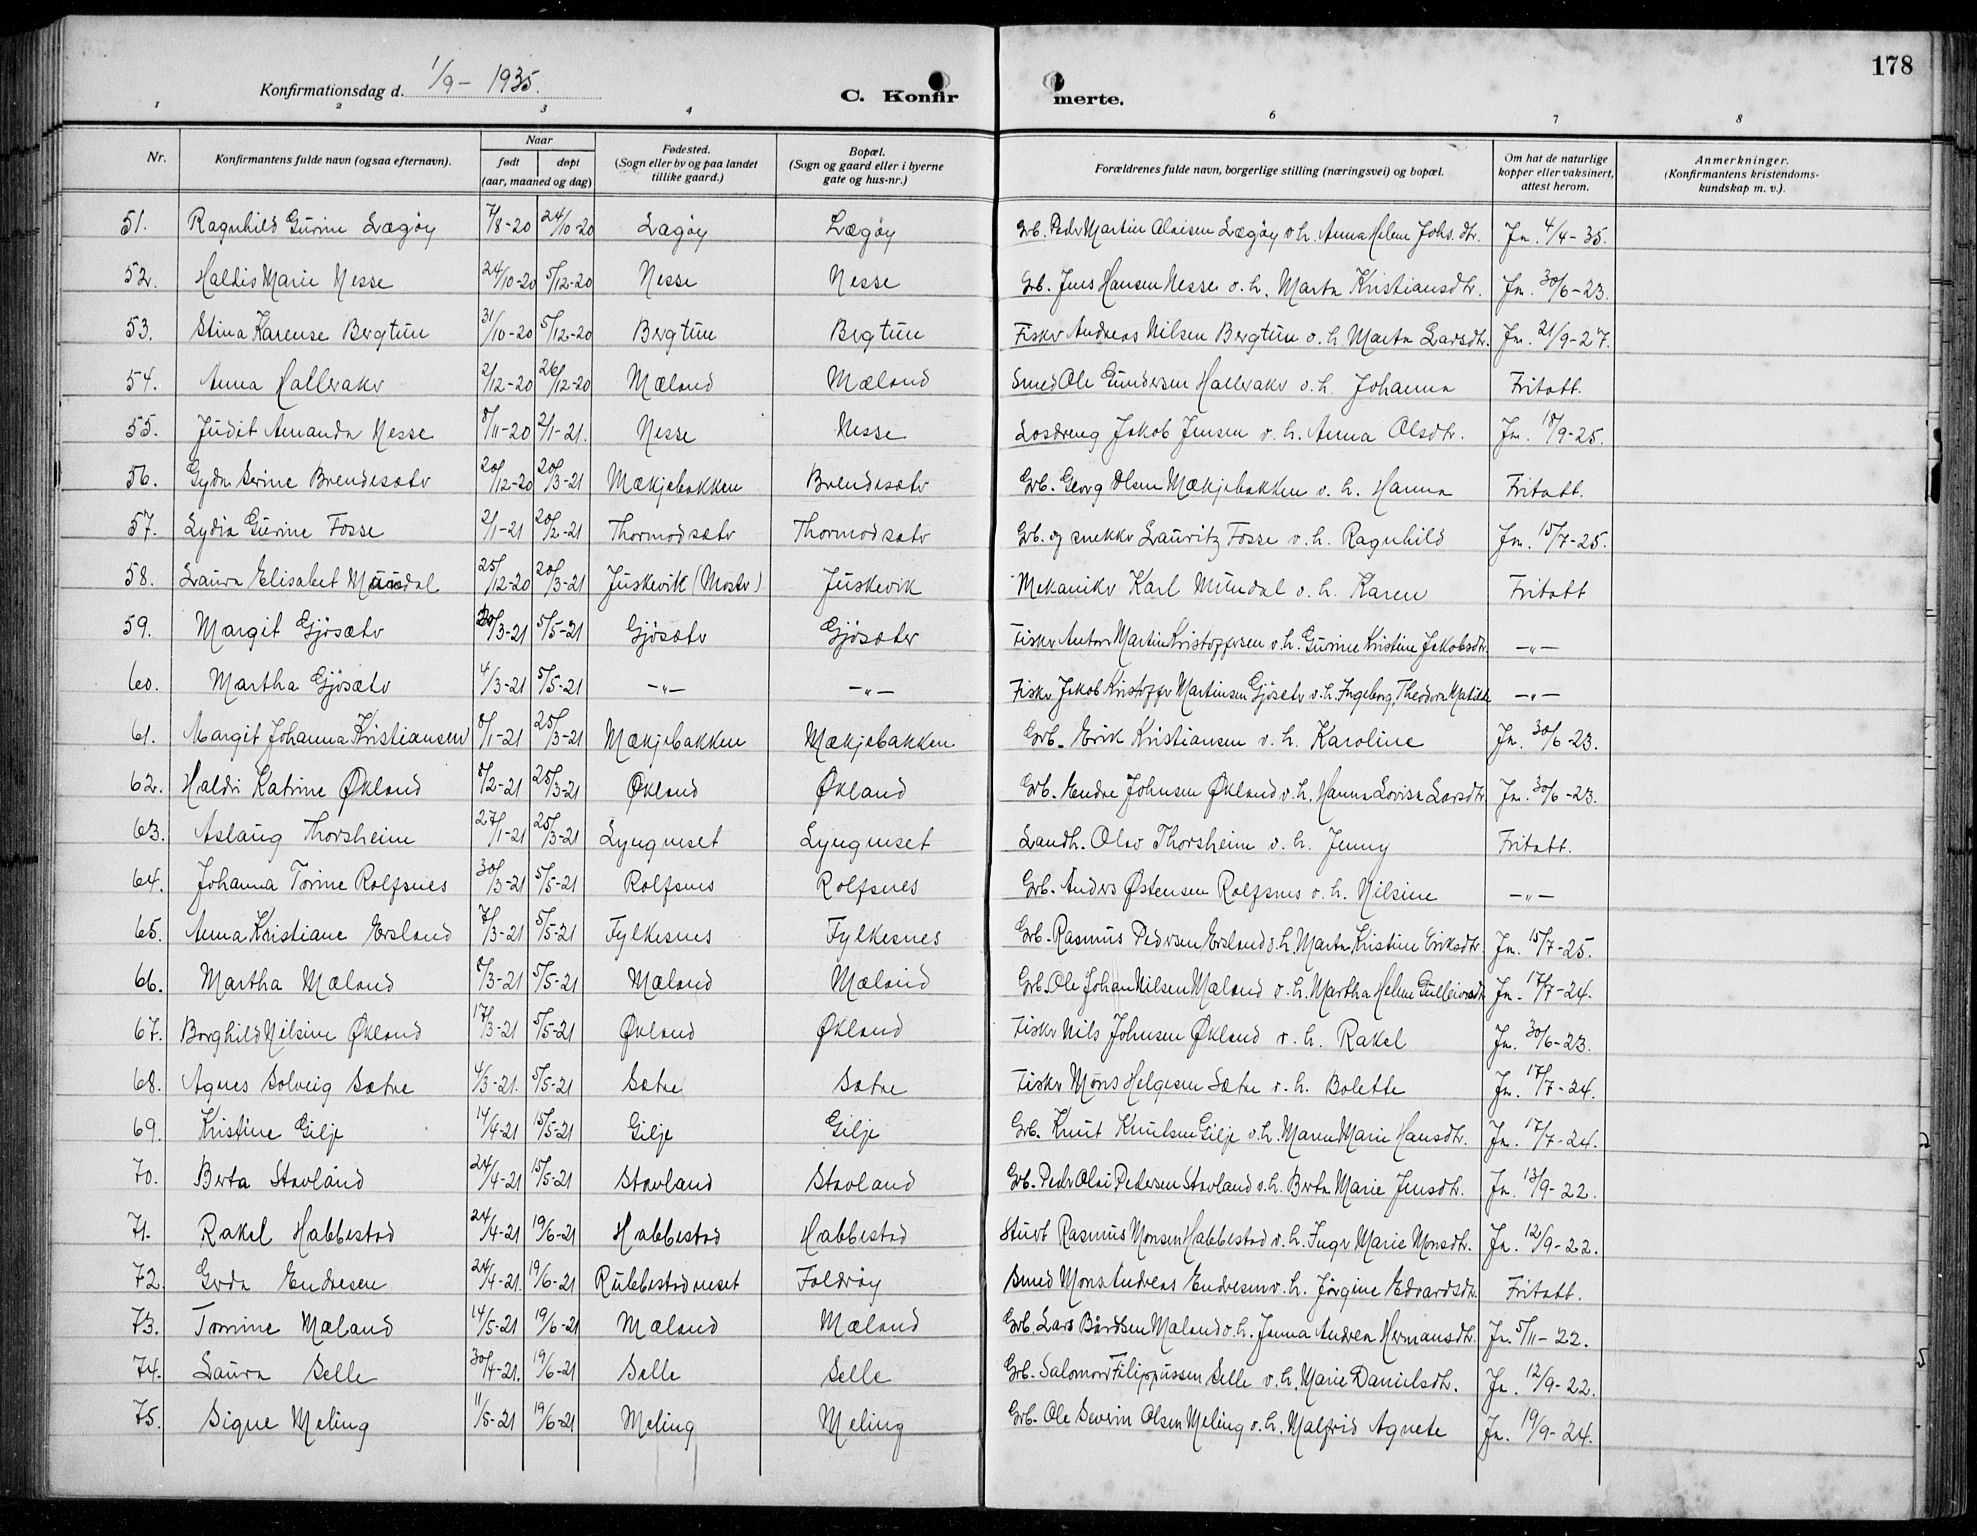 178
Konfirmationsdag d. 1/9 - 1935.
C. Konfirmerte.
1 2 3 4 6 7 8
Nr. Konfirmantens fulde navn (ogsaa efternavn). Naar født døpt (aar, maaned og dag) Fødested. (Sogn eller by og paa landet tillike gaard.) Bopæl. (Sogn og gaard eller i byerne gate og hus-nr.) Forældrenes fulde navn, borgerlige stilling (næringsvei) og bopæl. Om hat de naturlige kopper eller vaksinert, attest herom. Anmerkninger. (Konfirmantens kristendomskundskap m. v.).
51. Ragnhild Gurine Lægøy 7/8-20 24/10-20 Lægøy Lægøy Grb. Peder Martin Olaisen Lægøy o.h. Anna Helene Johs.dtr. Ja. 4/4-35.
52. Haldis Marie Nesse 24/10-20 5/12-20 Nesse Nesse Grb. Jens Hansen Nesse o.h. Marta Kristiansdtr. Ja. 30/6-23.
53. Stina Karense Bergtun 31/10-20 5/12-20 Bergtun Bergtun Fisker Andreas Nilsen Bergtun o.h. Marta Larsdtr. Ja. 21/9-27.
54. Anna Halleraker 2/12-20 26/12-20 Mæland Mæland Smed Ole Gundersen Halleraker o.h. Johanna Fritatt.
55. Judit Amanda Nesse 8/11-20 2/1-21. Nesse Nesse Losdreng Jakob Jensen o.h. Anna Olsdtr. Ja. 18/9-25.
56. Gyda Serine Brendesæter 20/12-20 20/3-21 Mækjebakken Brendesæter Grb. Georg Olsen Mækjebakken o.h. Hanna Fritatt.
57. Lydia Gurine Fosse 2/1-21 20/2-21 Thormodsæter Thormodsæter Grb. og snekker Lauritz Fosse o.h. Ragnhild Ja. 15/7-25.
58. Laura Elisabet Mundal 25/12-20 20/3-21 Juskevik (Moster) Juskevik Mekaniker Karl Mundal o.h. Karen Fritatt
59. Margit Gjøsæter 20/3-21 5/5-21 Gjøsæter Gjøsæter Fisker Anton Martin Kristoffersen o.h. Gurine Kristine Jakobsdtr. -"-
60. Martha Gjøsæter 4/3-21 5/5-21 -"- -"- Fisker Jakob Kristoffer Martinsen Gjøsæter o.h. Ingeborg Theodora Matilde -"-
61. Margit Johanna Kristiansen 8/1-21 25/3-21 Mækjebakken Mækjebakken Grb. Erik Kristiansen o.h. Karoline Ja. 30/6-23.
62. Haldri Katrine Økland 8/2-21 25/3-21 Økland Økland Grb. Endre Johnsen Økland o.h. Hanna Lovise Larsdtr. Ja. 30/6-23.
63. Aslaug Thorsheim 27/1-21 25/3-21 Lyngneset Lyngneset Landh. Olav Thorsheim o.h. Jenny Fritatt.
64. Johanna Torine Rolfsnes 30/3-21 5/5-21 Rolfsnes Rolfsnes Grb. Anders Østensen Rolfsnes o.h. Nilsine -"-
65. Anna Kristiane Ersland 7/3-21 5/5-21 Fylkesnes Fylkesnes Grb. Rasmus Pedersen Ersland o.h. Marta Kristine Eriksdtr. Ja. 15/7-25.
66. Martha Mæland 8/3-21 5/5-21 Mæland Mæland Grb. Ole Johan Nilsen Mæland o.h. Martha Helene Gulleivsdtr. Ja. 17/7-24.
67. Borghild Nilsine Økland 17/3-21 5/5-21 Økland Økland Fisker Nils Johnsen Økland o.h. Rakel Ja. 30/6-23.
68. Agnes Solveig Sætre 4/3-21. 5/5-21 Sætre Sætre Fisker Møns Helgesen Sætre o.h. Bolette Ja. 17/7-24.
69. Kristine Gilje 14/4-21 15/5-21 Gilje Gilje Grb. Knut Knutsen Gilje o.h. Maren Marie Hansdtr. Ja. 17/7-24.
70. Berta Stavland 24/4-21 15/5-21 Stavland Stavland Grb. Peder Olai Pedersen Stavland o.h. Berta Marie Jensdtr. Ja. 13/9-22.
71. Rakel Habbestad 24/4-21 19/6-21 Habbestad Habbestad Stuert Rasmus Monsen Habbestad o.h. Inger Marie Monsdtr. Ja. 12/9-22.
72. Gerda Endresen 24/4-21. 19/6-21 Rubbestadneset Foldrøy Smed Mons Andreas Endresen o.h. Jørgine Edvardsdtr. Fritatt.
73. Tomine Mæland 14/5-21 19/6-21 Mæland Mæland Grb. Lars Bårdsen Mæland o.h. Janna Andrea Hermansdtr. Ja. 5/11-22.
74. Laura Selle 30/4-21. 19/6-21 Selle Selle Grb. Salomon Filippussen Selle o.h. Marie Danielsdtr. Ja. 12/9-22.
75. Signe Meling 11/5-21 19/6-21 Meling Meling Grb. Ole Severin Olsen Meling o.h. Malfrid Agnete Ja. 19/9-24.